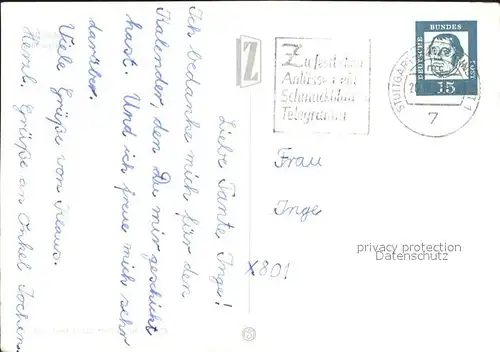 Liebe Tante Inge!
Ich bedanke mich für den
Kalender, den Du mir geschickt
hast. Und ich freue mich sehr
darüber.
Viele Grüße von Klaus.
Herzl. Grüße an Onkel Jochen.
Z
Zu festlichen
Anlässen ein
Schmuckblatt
Telegramm
DEUTSCHE
BUNDES
POST
15
STUTTGART
7
Frau
Inge
X801
privacy protection
Datenschutz